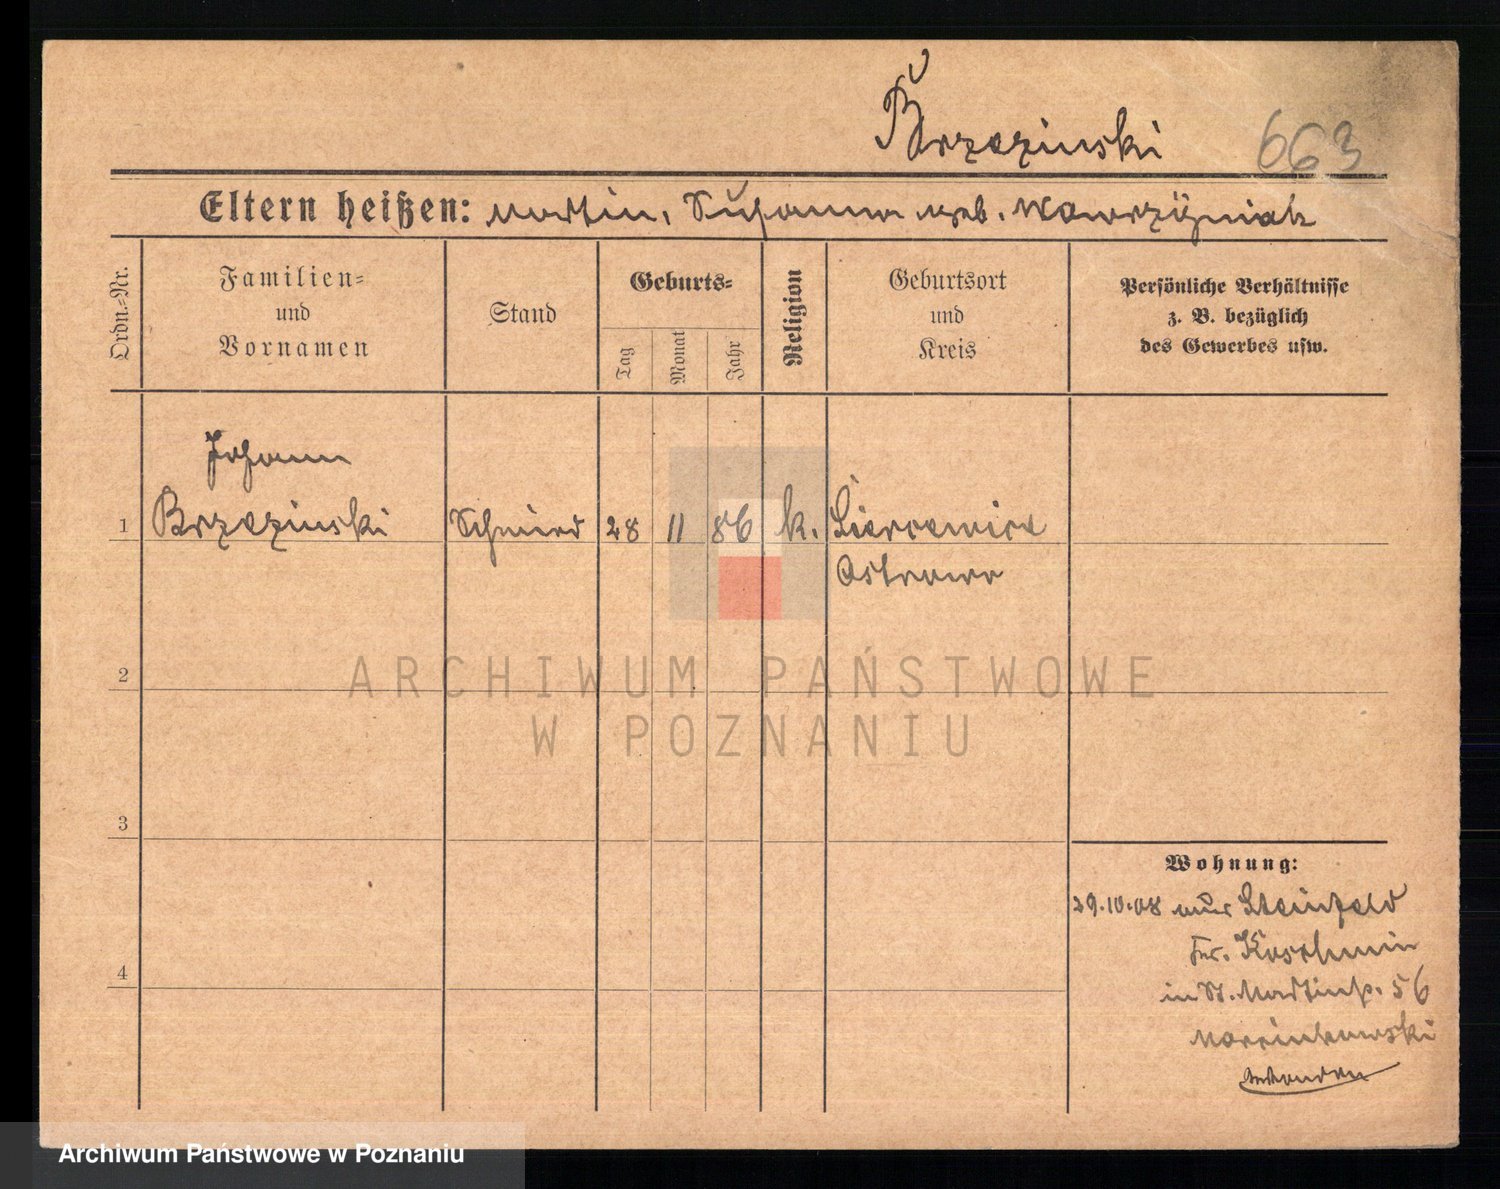 Brzezinski
663
Eltern heißen: Martin, Susanna geb. Wawrzyniak
Ordn.-Nr.
Familien-
und
Vornamen
Stand
Geburts-
Tag
Monat
Jahr
Religion
Geburtsort
und
Kreis
Persönliche Verhältnisse
z. B. bezüglich
des Gewerbes usw.
Johann
1 Brzezinski Schmied 28 11 86 k.
Ostrowo
2
3
4
Wohnung:
29.10.08 aus Steinfeld
Kr. Koschmin
in St. Martinstr. 56
Marcinkowski
ARCHIWUM PAŃSTWOWE
W POZNANIU
Archiwum Państwowe w Poznaniu